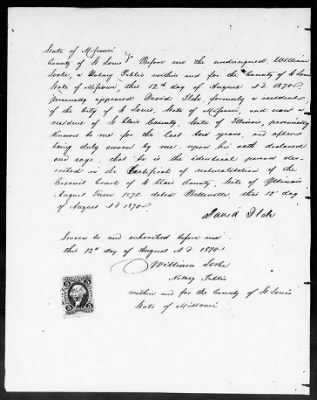 State of Missouri
County of St Louis Before me the undersigned, William
a Notary Public within and for the County of St Louis
State of Missouri, this 12th day of August A.D. 1870.
Personally appeared David formerly a resident
of the City of St Louis, State of Missouri, and now a
resident of St Clair County, State of Illinois, personally
known to me for the last years, and after
being duly sworn by me upon his oath declared
and says, that he is the identical person des-
cribed in the Certificate of naturalization of the
Circuit Court of St Clair County, State of Illinois
August Term 1870. dated Belleville, this 12th day
of August A.D. 1870.
David
Sworn to and subscribed before me
this 12th day of August A.D. 1870.
William
Notary Public
within and for the County of St Louis
State of Missouri